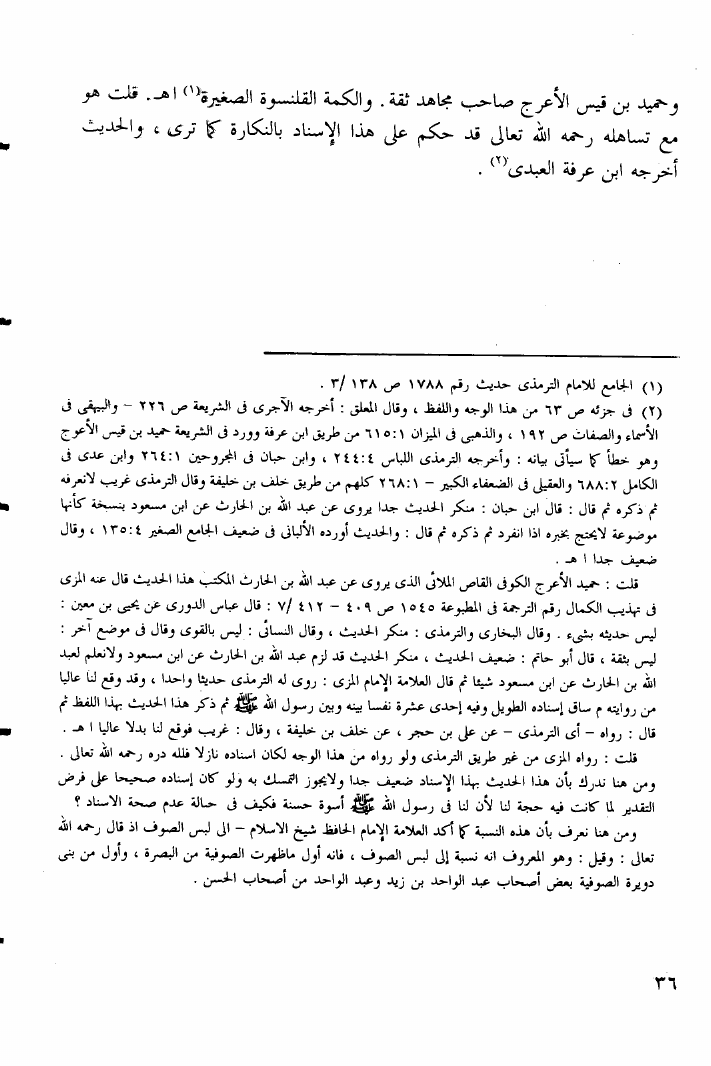 وحميد بن قيس الأعرج صاحب مجاهد ثقة . والكمة القلنسوة الصغيرة(١) اهـ. قلت هو
مع تساهله رحمه الله تعالى قد حكم على هذا الإسناد بالنكارة كما ترى ، والحديث
أخرجه ابن عرفة العبدى(٢) .
(١) الجامع للامام الترمذى حديث رقم ١٧٨٨ ص ١٣٨ /٣ .
(٢) فى جزئه ص ٦٣ من هذا الوجه واللفظ ، وقال المعلق : أخرجه الآجرى فى الشريعة ص ٢٢٦ – والبيهقى فى
الأسماء والصفات ص ١٩٢ ، والذهبى فى الميزان ٦١٥:١ من طريق ابن عرفة وورد فى الشريعة حميد بن قيس الأعرج
وهو خطأ كما سيأتى بيانه : وأخرجه الترمذى اللباس ٢٤٤:٤ ، وابن حبان فى المجروحين ٢٦٤:١ وابن عدى فى
الكامل ٦٨٨:٢ والعقيلى فى الضعفاء الكبير – ٢٦٨:١ كلهم من طريق خلف بن خليفة وقال الترمذى غريب لانعرفه
ثم ذكره ثم قال : قال ابن حبان : منكر الحديث جدا يروى عن عبد الله بن الحارث عن ابن مسعود بنسخة كأنها
موضوعة لايحتج بخبره اذا انفرد ثم ذكره ثم قال : والحديث أورده الألبانى فى ضعيف الجامع الصغير ١٣٥:٤ ، وقال
ضعيف جدا ا هـ .
قلت : حميد الأعرج الكوفى القاص الملائى الذى يروى عن عبد الله بن الحارث المكتب هذا الحديث قال عنه المزى
فى تهذيب الكمال رقم الترجمة فى المطبوعة ١٥٤٥ ص ٤٠٩ – ٤١٢ /٧ : قال عباس الدورى عن يحيى بن معين :
ليس حديثه بشىء . وقال البخارى والترمذى : منكر الحديث ، وقال النسائى : ليس بالقوى وقال فى موضع آخر :
ليس بثقة ، قال أبو حاتم : ضعيف الحديث ، منكر الحديث قد لزم عبد الله بن الحارث عن ابن مسعود ولانعلم لعبد
الله بن الحارث عن ابن مسعود شيئا ثم قال العلامة الإمام المزى : روى له الترمذى حديثا واحدا ، وقد وقع لنا عاليا
من روايته م ساق إسناده الطويل وفيه إحدى عشرة نفسا بينه وبين رسول الله ﷺ ثم ذكر هذا الحديث بهذا اللفظ ثم
قال : رواه – أى الترمذى – عن على بن حجر ، عن خلف بن خليفة ، وقال : غريب فوقع لنا بدلا عاليا ا هـ .
قلت : رواه المزى من غير طريق الترمذى ولو رواه من هذا الوجه لكان اسناده نازلا فلله دره رحمه الله تعالى .
ومن هنا ندرك بأن هذا الحديث بهذا الإسناد ضعيف جدا ولايجوز التمسك به ولو كان إسناده صحيحا على فرض
التقدير لما كانت فيه حجة لنا لأن لنا فى رسول الله ﷺ أسوة حسنة فكيف فى حالة عدم صحة الاسناد ؟
ومن هنا نعرف بأن هذه النسبة كما أكد العلامة الإمام الحافظ شيخ الاسلام – الى لبس الصوف اذ قال رحمه الله
تعالى : وقيل : وهو المعروف انه نسبة إلى لبس الصوف ، فانه أول ماظهرت الصوفية من البصرة ، وأول من بنى
دويرة الصوفية بعض أصحاب عبد الواحد بن زيد وعبد الواحد من أصحاب الحسن .
٣٦